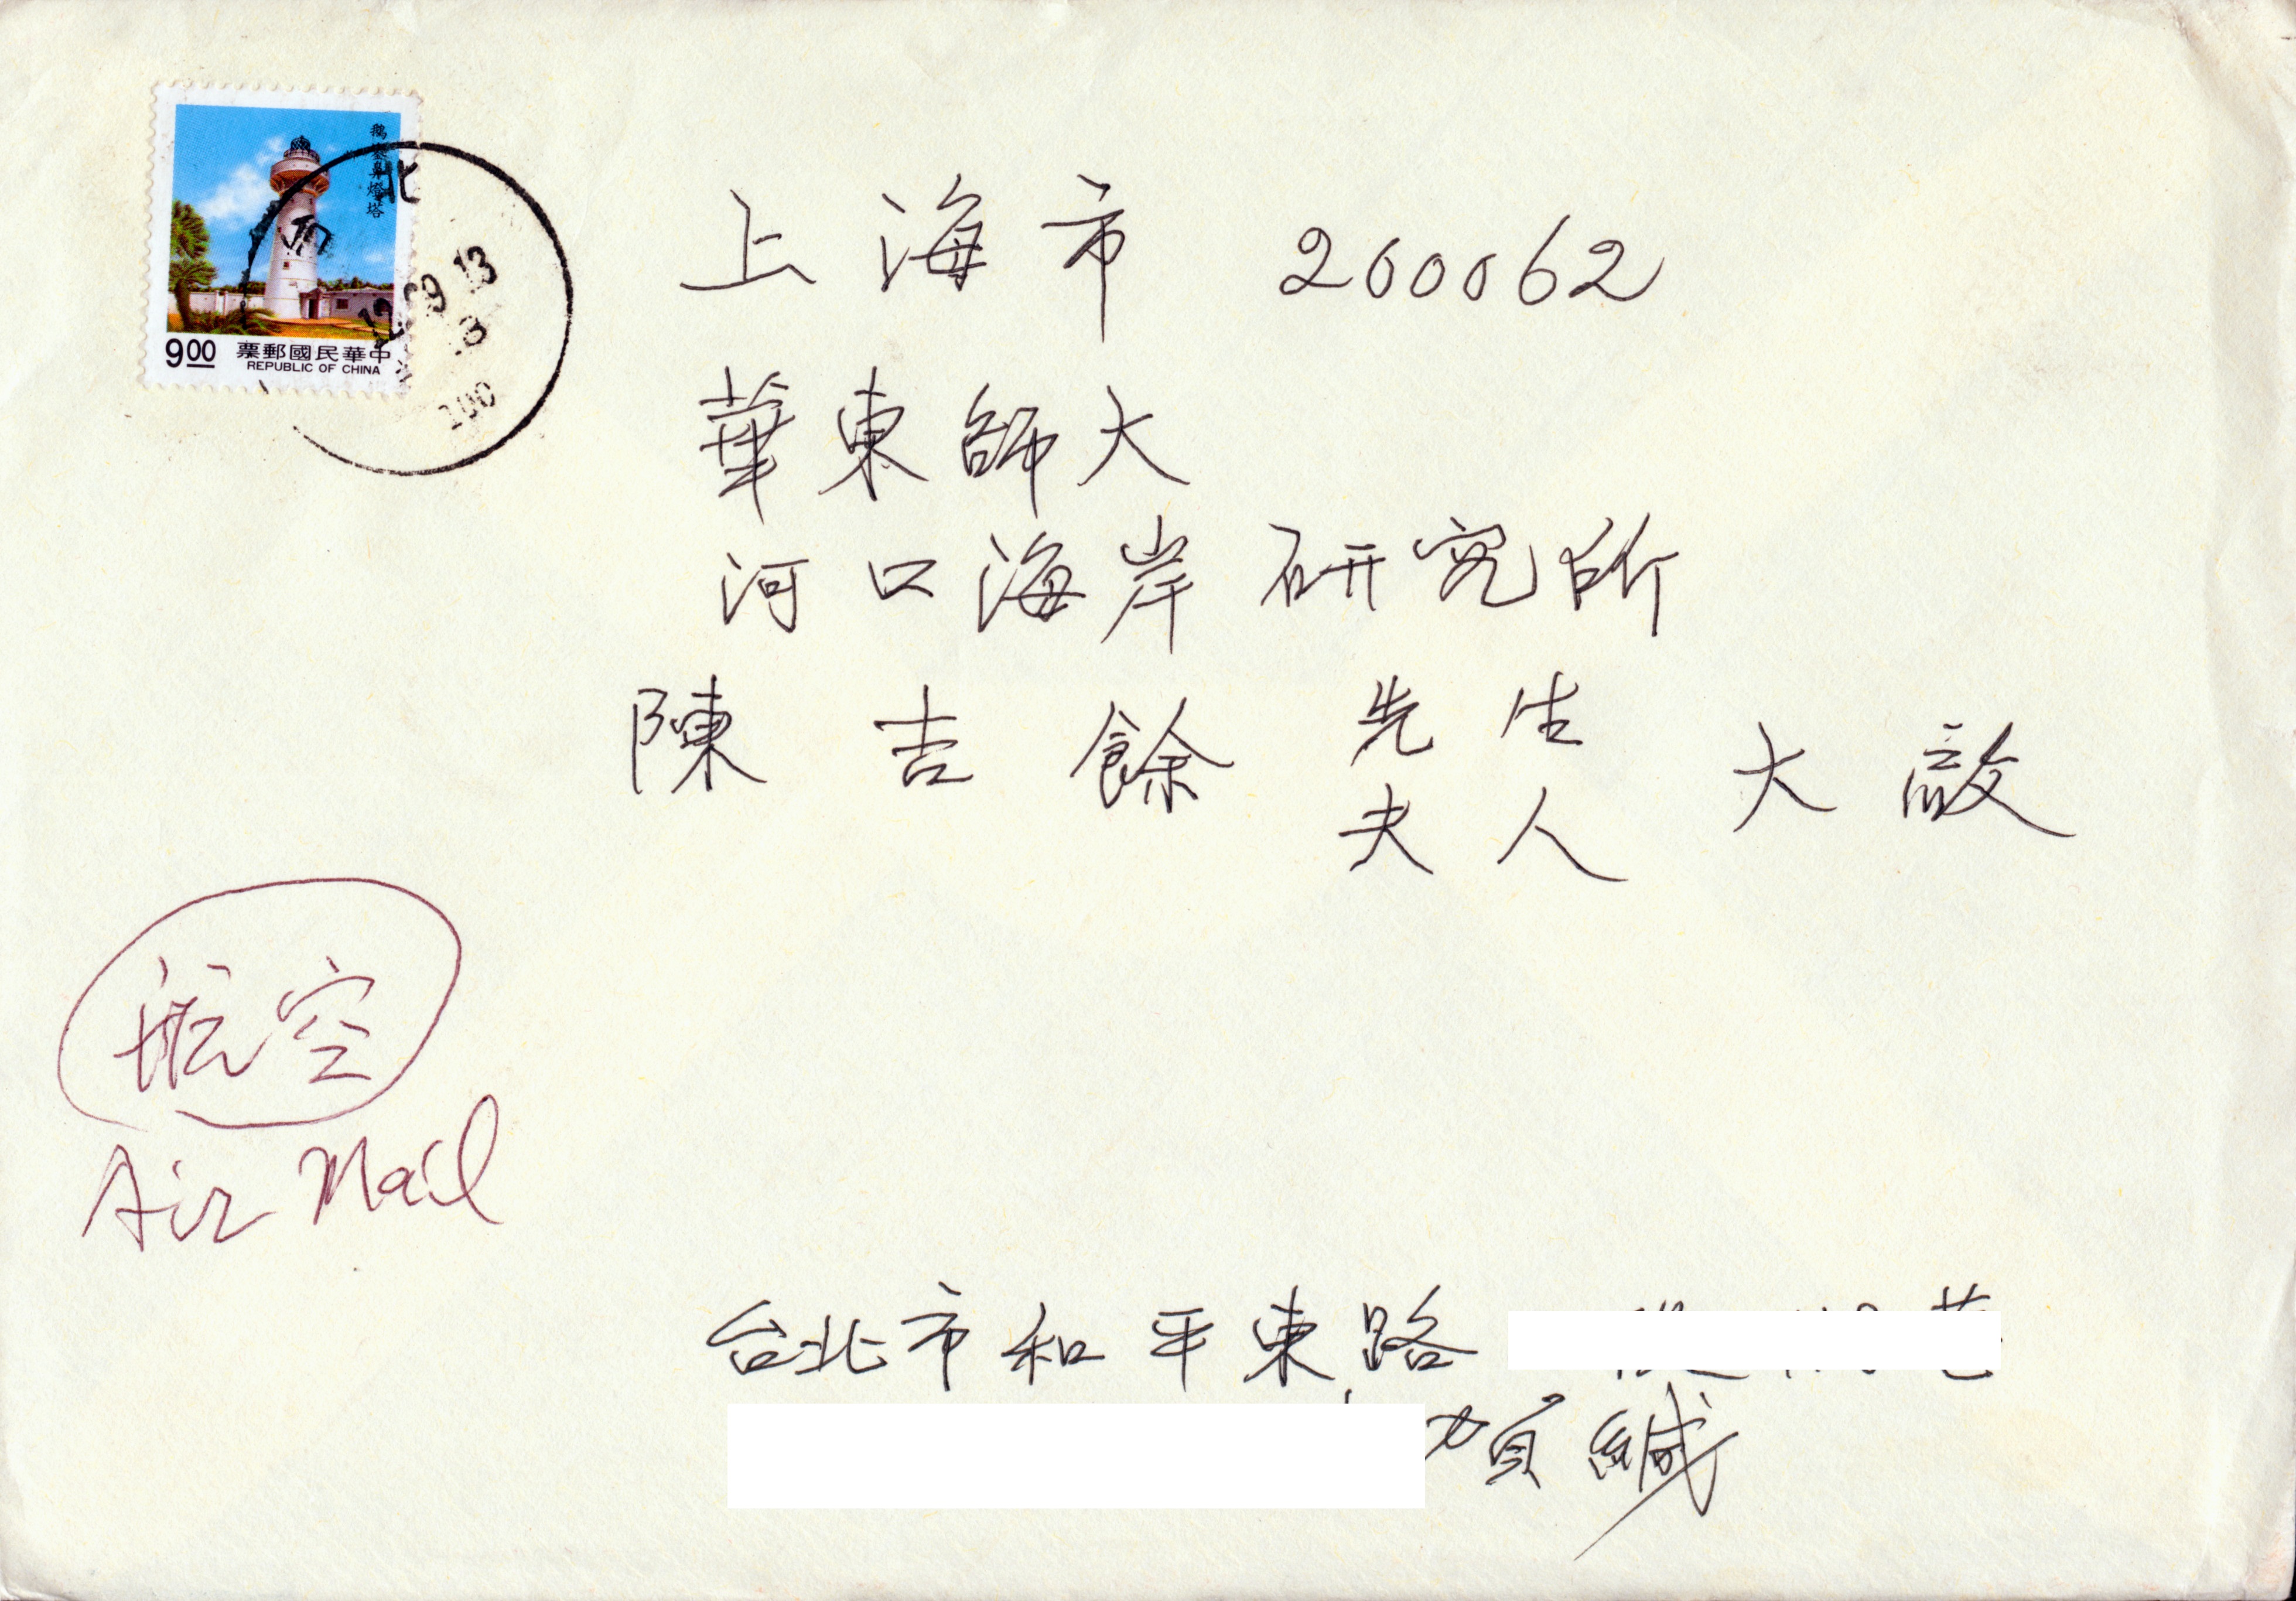 鵝鑾鼻燈塔
9.00 票郵國民華中
REPUBLIC OF CHINA
北
13
100
上海市 200062
華東師大
河口海岸研究所
陳吉餘 先生 大啟
夫人
航空
Air Mail
台北市和平東路
緘